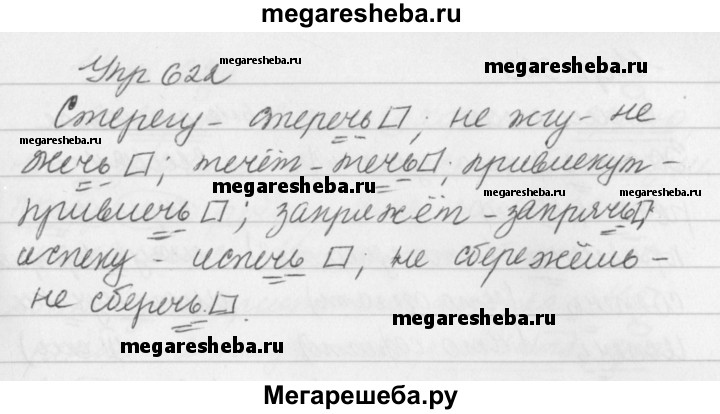 megaresheba.ru
Упр 622
megaresheba.ru
megaresheba.ru
Стерегу - стеречь □; не жгу - не
megaresheba.ru
megaresheba.ru
жечь □, течёт - течь □; привлекут -
megaresheba.ru
megaresheba.ru
megaresheba.ru
привлечь □; запряжёт - запрячь □;
испеку - испечь □, не сбережёшь -
не сберечь □.
megaresheba.ru
megaresheba.ru
Мегарешеба.ру